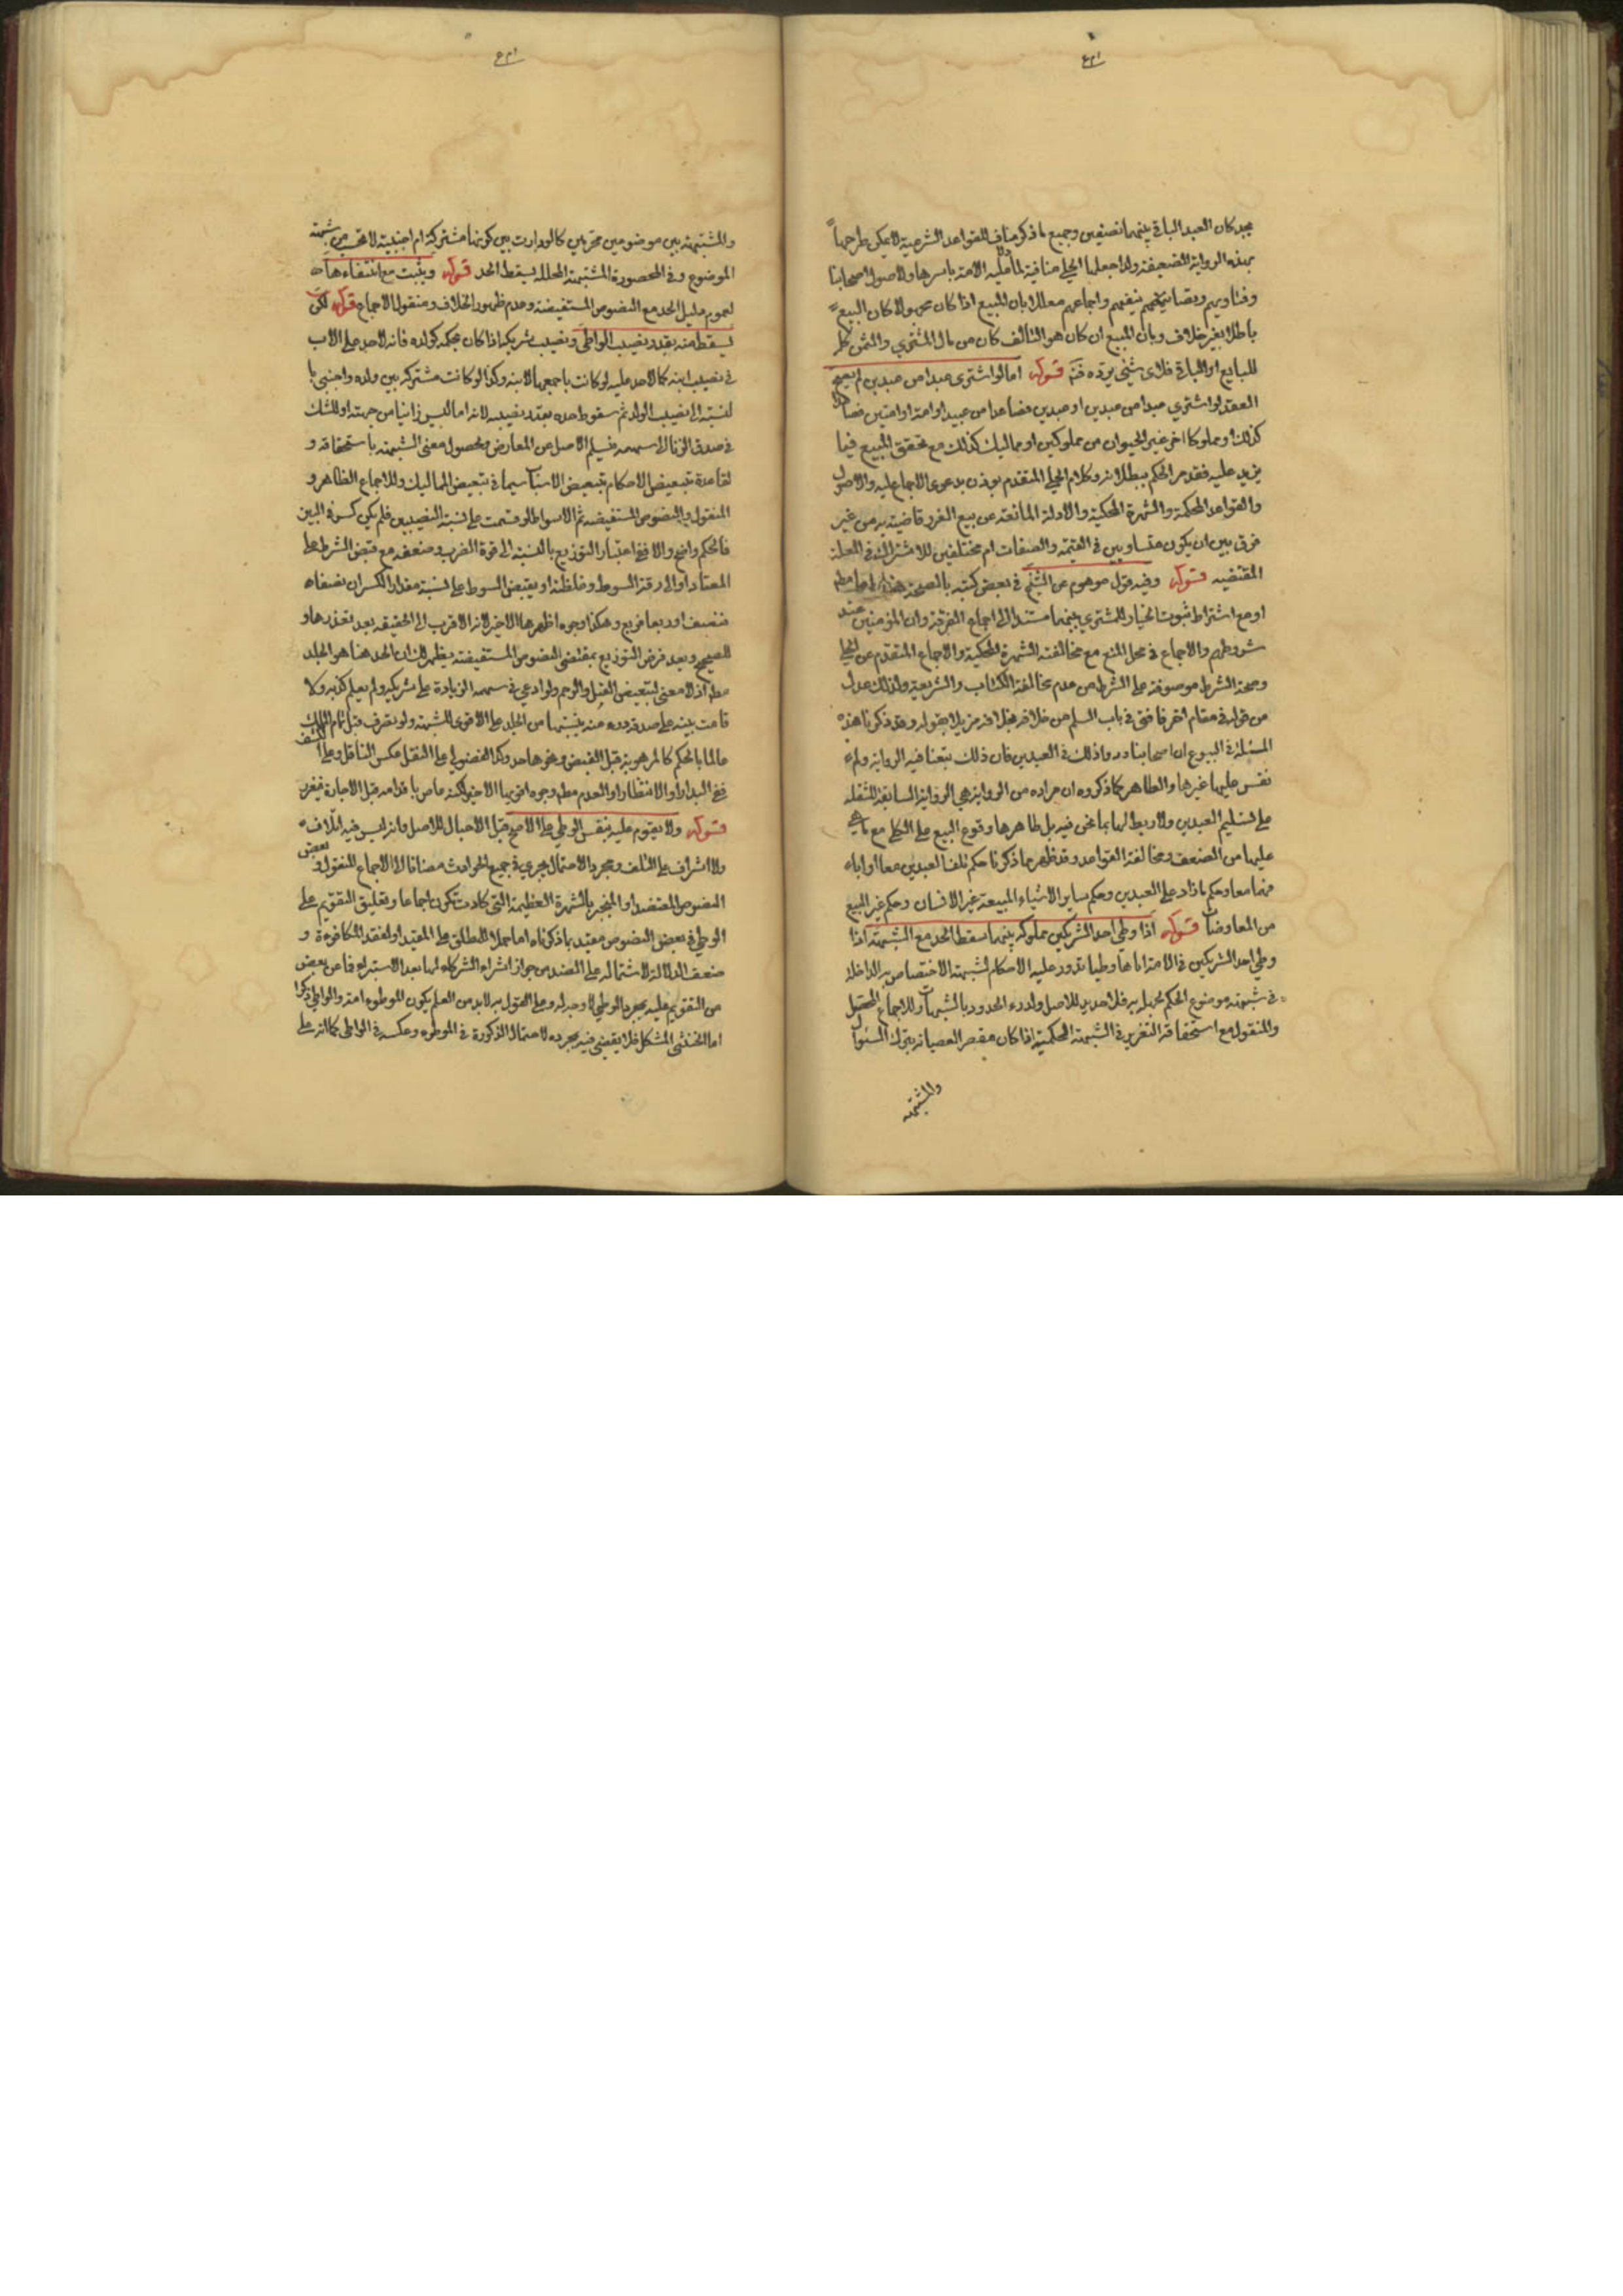 يجد كان العبد الباقي بينهما نصفين وجميع ما ذكر مناف للقواعد الشرعية لا يمكن طرحها
بهذه الرواية الضعيفة ولذا جعلها الحلي منافية لما عليه الامة باسرها ولاصول اصحابنا
وفتاويهم وتصانيفهم واجماعهم معللا بان المبيع اذا كان مجهولا كان البيع
باطلا بغير خلاف وبان المبيع ان كان هو التالف كان من مال المشتري والثمن كله
للبايع او الباقي فلاي شيء يرده قوله اما لو اشترى عبدا من عبدين لم يصح
العقد لو اشتري عبدا من عبدين او عبدين فصاعدا من عبيد او امة او امتين فصاعدا
كذلك او مملوكا اخر غير الحيوان من مملوكين او مماليك كذلك مع تحقق المبيع فيما
يزيد عليه فقد مر الحكم ببطلانه وكلام الحلي المتقدم يوذن بدعوى الاجماع عليه والاصول
والقواعد المحكمة والشهرة المحكية والادلة المانعة عن بيع الغرر قاضية به من غير
فرق بين ان يكون متساويين في القيمة والصفات ام مختلفين للاشتراك في العلة
المقتضيه قوله وفيه قول موهوم عن الشيخ في بعض كتبه بالصحة
او مع اشتراط ثبوت الخيار للمشتري بينهما مستندا الى اجماع الفرقة وان المؤمنين عند
شروطهم والاجماع في محل المنع مع مخالفته الشهرة المحكية والاجماع المتقدم عن الحلي
وصحة الشرط موصوفة على الشرط من عدم مخالفة الكتاب والشريعة ولذلك عدل
عن قوله في مقام اخر فافتى في باب السلم من خلافه بخلافه مزيلا بقوله وقد ذكرنا هذه
المسئلة في البيوع ان اصحابنا رووا ذلك في العبدين فان ذلك تبعنا فيه الرواية ولم
نقس عليها غيرها والظاهر كما ذكروه ان مراده من الرواية هي الرواية السابقة المنقلة
على تسليم العبدين ولا ربط لها بما نحن فيه بل ظاهرها وقوع البيع على الكلي مع ما هي
عليها من الضعف ومخالفة القواعد وقد ظهر مما ذكرنا حكم تلف العبدين معا او اباق
منهما معا وحكم ما زاد على العبدين وحكم ساير الاشياء المبيعة غير الانسان وحكم غير البيع
من المعاوضات قوله اذا وطي احد الشريكين مملوكة بينهما سقط الحد مع الشبهة اذا
وطي احد الشريكين في الامة اياها وطيا تدور عليه الاحكام لشبهة الاختصاص به الداخلة
في شبهة موضوع الحكم لجهله به فلا حد عليه للاصل ولدرء الحدود بالشبهات وللاجماع المحصل
والمنقول مع استحقاقه التعزير في الشبهة الحكمية اذا كان مقصر العصيانه بترك السئوال
والمشتبهة
والمشتبهة بين موضوعين محرمين كالوداوت بين كونها مشتركة ام اجنبية لا تحسب من شبهة
الموضوع وفي المحصورة المشتبهة المحللة يسقط الحد قوله ويثبت مع انتفاءها
لعموم دليل الحد مع النصوص المستفيضة وعدم ظهور الخلاف ومنقول الاجماع قوله لكن
يسقط منه بقدر نصيب الواطي ونصيب شريكه اذا كان بحكمه كولده فانه لا حد على الاب
في نصيب ابنه كما لا حد عليه لو كانت باجمعها لابنه وكذا لو كانت مشتركة بين ولده واجنبي با
لنسبة الى نصيب الولد ثم سقوط حده بقدر نصيبه لانه اما ليس زانيا من جهته او للشك
في صدق الزنا الى سهمه فيسلم الاصل عن المعارض ولحصول معنى الشبهة باستحقاقه و
لقاعدة تبعيض الاحكام بتبعيض الاسباب سيما في تبعيض المماليك وللاجماع الظاهر و
المنقول والنصوص المستفيضه ثم الاسواط لو قسمت على نسبة النصيبين فلم يكن كسر في البين
فالحكم واضح والا ففي اعتبار التوزيع بالنسبة الى قوة الضرب وضعفه مع قبض السوط على
المعتاد او الى رقة السوط وغلظته او بقبض السوط على نسبة مقدار الكسر ان نصفا
فنصف او ربعا فربع وهكذا وجوه اظهرها الاخير لانه الاقرب الى الحقيقة بعد تعذرها و
للصحيح وبعد فرض التوزيع بمقتضى النصوص المستفيضة يظهر لك ان الحد هنا هو الجلد
مطلقا اذ لا معنى لتبعيض القتل والرجم ولو ادعى في سهمه الزيادة على شريكه ولم يعلم كذبه ولا
قامت بينة على صدقه درء عنه بنسبتها من الجلد على الاقوى للشبهة ولو تصرف قبل تمام الملك
عالما بالحكم كالموهوبة قبل القبض ونحوها حد وكذا الفضولي على النقل عكس الناقل وعلى الكشف
ففي البدار او الانتظار او العدم مطلقا وجوه اقربها الاخير لكنه عاص باقدامه قبل الاجازة فيعزر
قوله ولا يقوم عليه بنفس الوطي على الاصح قبل الاحبال للاصل وانه ليس فيه اتلاف
ولا اشراف على التلف ومجرد الاحتمال يجري في جميع الحوادث مضافا الى الاجماع المنقول وبعض
النصوص المعتضد او المنجبر بالشهرة العظيمة التي كادت تكون اجماعا وتعليق التقويم على
الوطي في بعض النصوص مقيد بما ذكرناه اما حملا للمطلق على المقيد او لفقد المكافوءة و
ضعف الدلالة لاشتماله على الضد من جواز اشراء الشركاء لها بعد الاستبراء فما عن بعض
من التقويم عليه بمجرد الوطي لا وجه له وعلى القول به لا بد من العلم بكون الموطوء امة والواطي ذكرا
اما الخنثى المشكل فلا يقضى فيه بمجرده لاحتمال الذكورة في الموطوء وعكسه في الواطي كما انه على